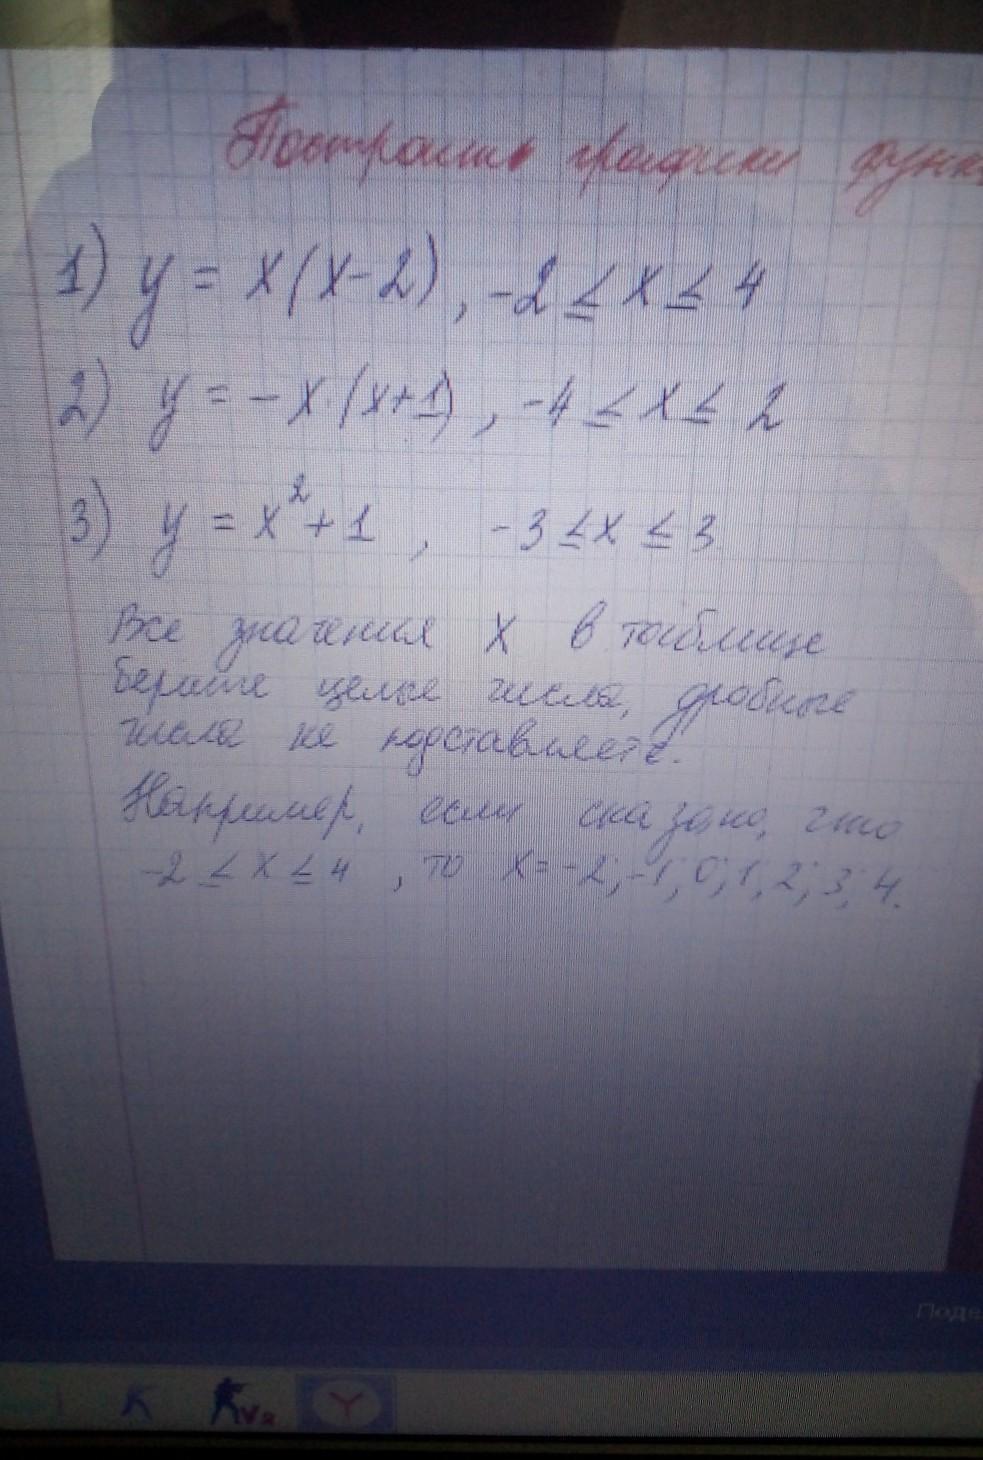 Построить графики функ
1) y = x(x-2), -2 ≤ x ≤ 4
2) y = -x·(x+1), -4 ≤ x ≤ 2
3) y = x² + 1, -3 ≤ x ≤ 3
Все значения x в таблице
берите целые числа, дробные
числа не подставляете.
Например, если сказано, что
-2 ≤ x ≤ 4, то x = -2; -1; 0; 1; 2; 3; 4.
Поде